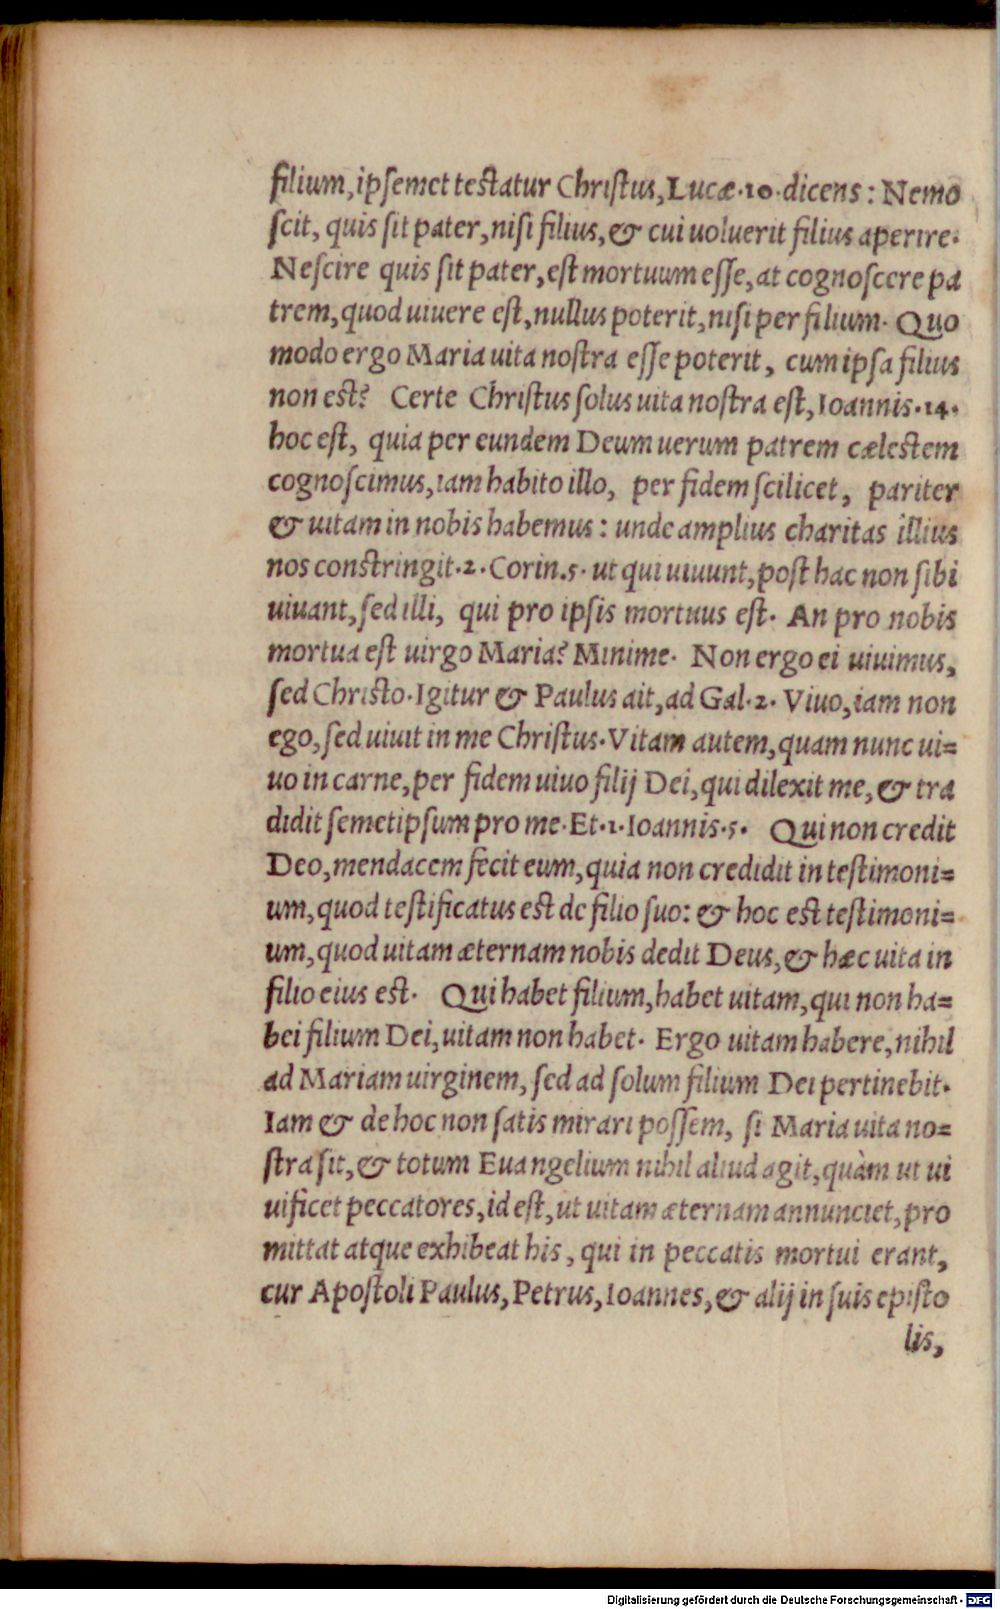 filium, ipsemet testatur Christus, Lucæ.10.dicens: Nemo
scit, quis sit pater, nisi filius, & cui uoluerit filius aperire.
Nescire quis sit pater, est mortuum esse, at cognoscere pa
trem, quod uiuere est, nullus poterit, nisi per filium. Quo
modo ergo Maria uita nostra esse poterit, cum ipsa filius
non est? Certe Christus solus uita nostra est, Ioannis.14.
hoc est, quia per eundem Deum uerum patrem cælestem
cognoscimus, iam habito illo, per fidem scilicet, pariter
& uitam in nobis habemus: unde amplius charitas illius
nos constringit.2.Corin.5. ut qui uiuunt, post hac non sibi
uiuant, sed illi, qui pro ipsis mortuus est. An pro nobis
mortua est uirgo Maria? Minime. Non ergo ei uiuimus,
sed Christo. Igitur & Paulus ait, ad Gal.2. Viuo, iam non
ego, sed uiuit in me Christus. Vitam autem, quam nunc ui=
uo in carne, per fidem uiuo filij Dei, qui dilexit me, & tra
didit semetipsum pro me. Et.1.Ioannis.5. Qui non credit
Deo, mendacem fecit eum, quia non credidit in testimoni=
um, quod testificatus est de filio suo: & hoc est testimoni=
um, quod uitam æternam nobis dedit Deus, & hæc uita in
filio eius est. Qui habet filium, habet uitam, qui non ha=
bei filium Dei, uitam non habet. Ergo uitam habere, nihil
ad Mariam uirginem, sed ad solum filium Dei pertinebit.
Iam & de hoc non satis mirari possem, si Maria uita no=
stra sit, & totum Euangelium nihil aliud agit, quàm ut ui
uificet peccatores, id est, ut uitam æternam annunciet, pro
mittat atque exhibeat his, qui in peccatis mortui erant,
cur Apostoli Paulus, Petrus, Ioannes, & alij in suis episto
lis,
Digitalisierung gefördert durch die Deutsche Forschungsgemeinschaft - DFG